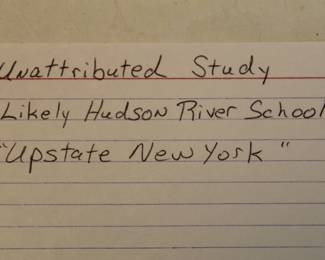 Unattributed Study
Likely Hudson River School
"Upstate New York"